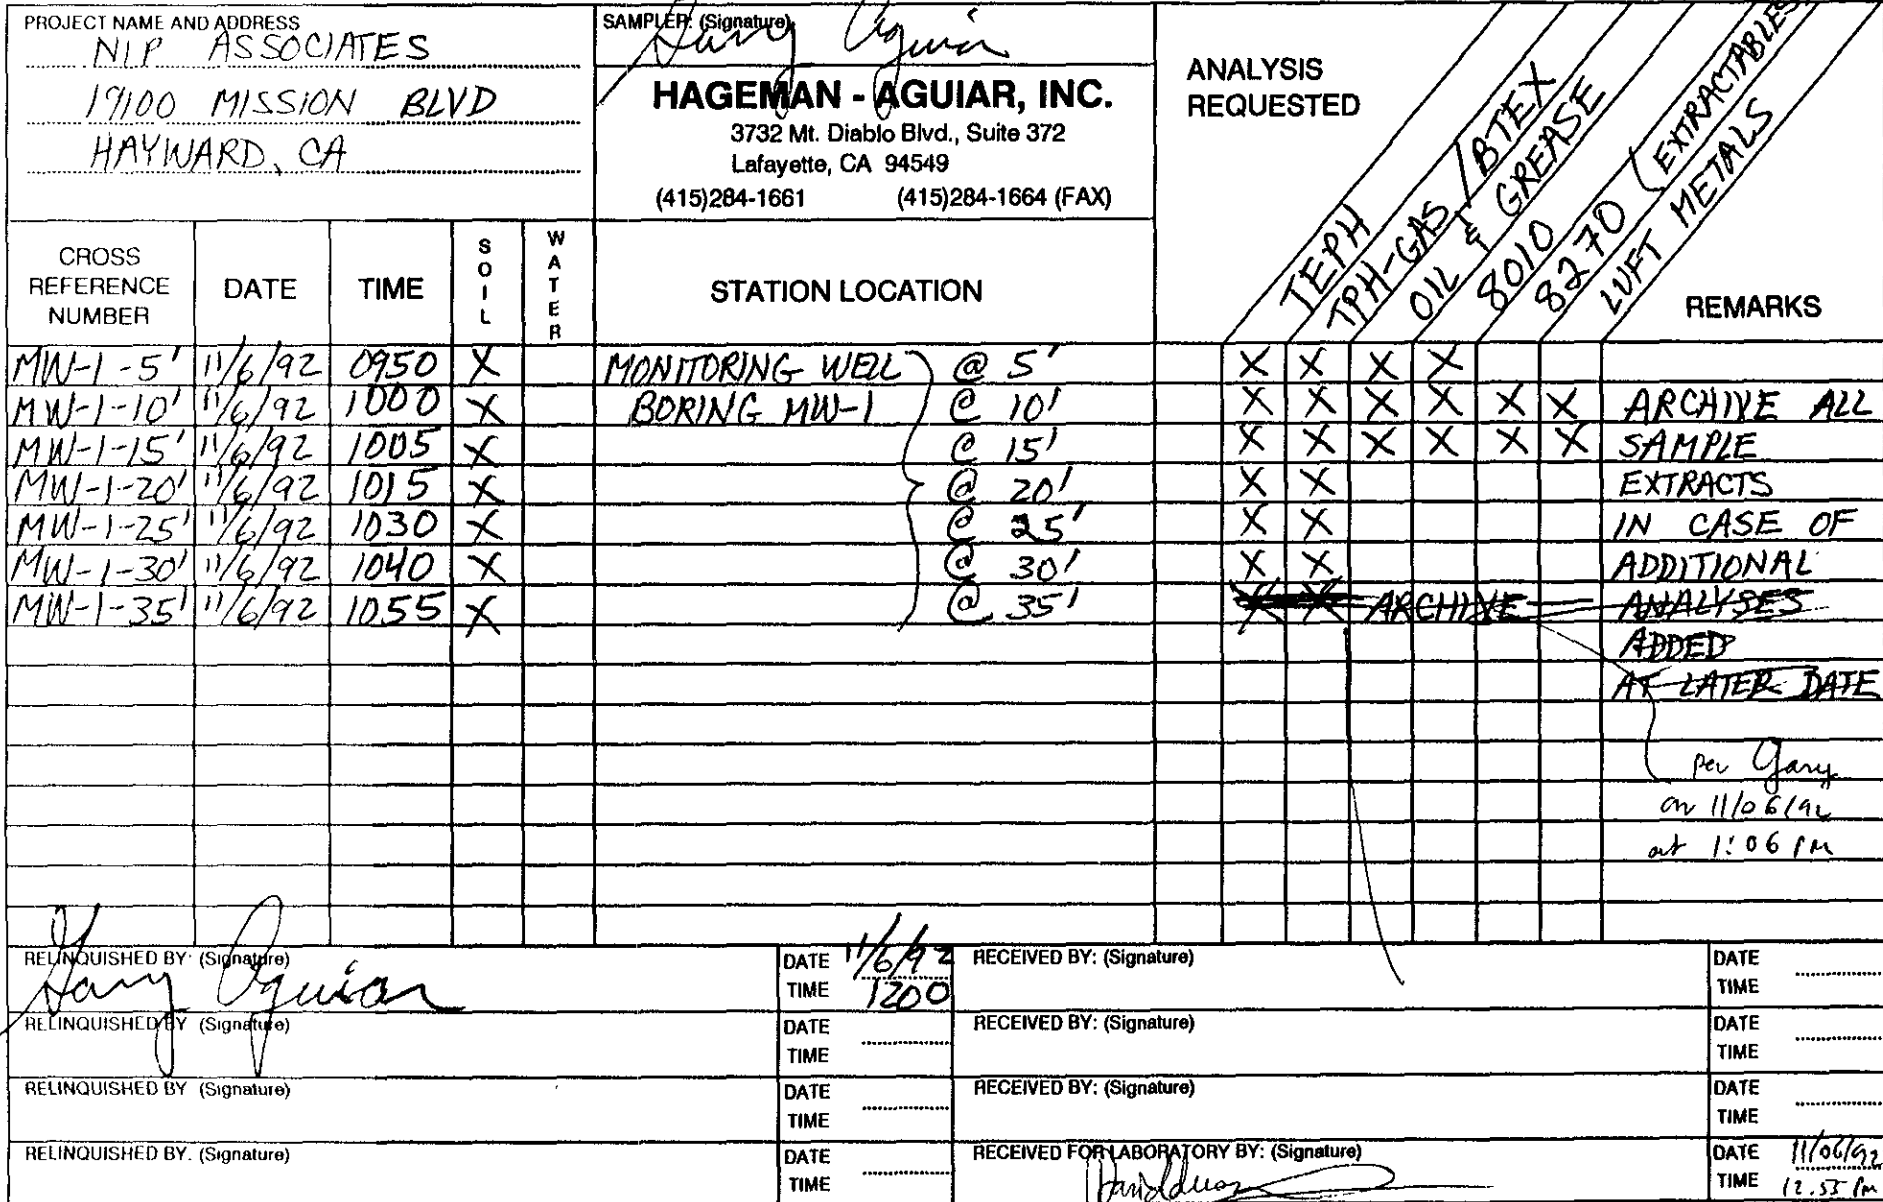 PROJECT NAME AND ADDRESS
NIP ASSOCIATES
19100 MISSION BLVD
HAYWARD, CA
SAMPLER: (Signature)
Gary Aguiar
HAGEMAN - AGUIAR, INC.
3732 Mt. Diablo Blvd., Suite 372
Lafayette, CA 94549
(415)284-1661 (415)284-1664 (FAX)
ANALYSIS
REQUESTED
TEPH
TPH-GAS/BTEX
OIL & GREASE
8010
8270 (EXTRACTABLES
LUFT METALS
CROSS REFERENCE NUMBER DATE TIME SOIL WATER STATION LOCATION REMARKS
MW-1-5' 11/6/92 0950 X MONITORING WELL @ 5' X X X X
MW-1-10' 11/6/92 1000 X BORING MW-1 @ 10' X X X X X X ARCHIVE ALL
MW-1-15' 11/6/92 1005 X @ 15' X X X X X X SAMPLE
MW-1-20' 11/6/92 1015 X @ 20' X X EXTRACTS
MW-1-25' 11/6/92 1030 X @ 25' X X IN CASE OF
MW-1-30' 11/6/92 1040 X @ 30' X X ADDITIONAL
MW-1-35' 11/6/92 1055 X @ 35' X X ARCHIVE ANALYSES
ADDED
AT LATER DATE
per Gary
on 11/06/92
at 1:06 PM
RELINQUISHED BY: (Signature) DATE 11/6/92 RECEIVED BY: (Signature) DATE
Gary Aguiar TIME 1200 TIME
RELINQUISHED BY (Signature) DATE RECEIVED BY: (Signature) DATE
TIME TIME
RELINQUISHED BY (Signature) DATE RECEIVED BY: (Signature) DATE
TIME TIME
RELINQUISHED BY. (Signature) DATE RECEIVED FOR LABORATORY BY: (Signature) DATE 11/06/92
TIME TIME 12.55 PM